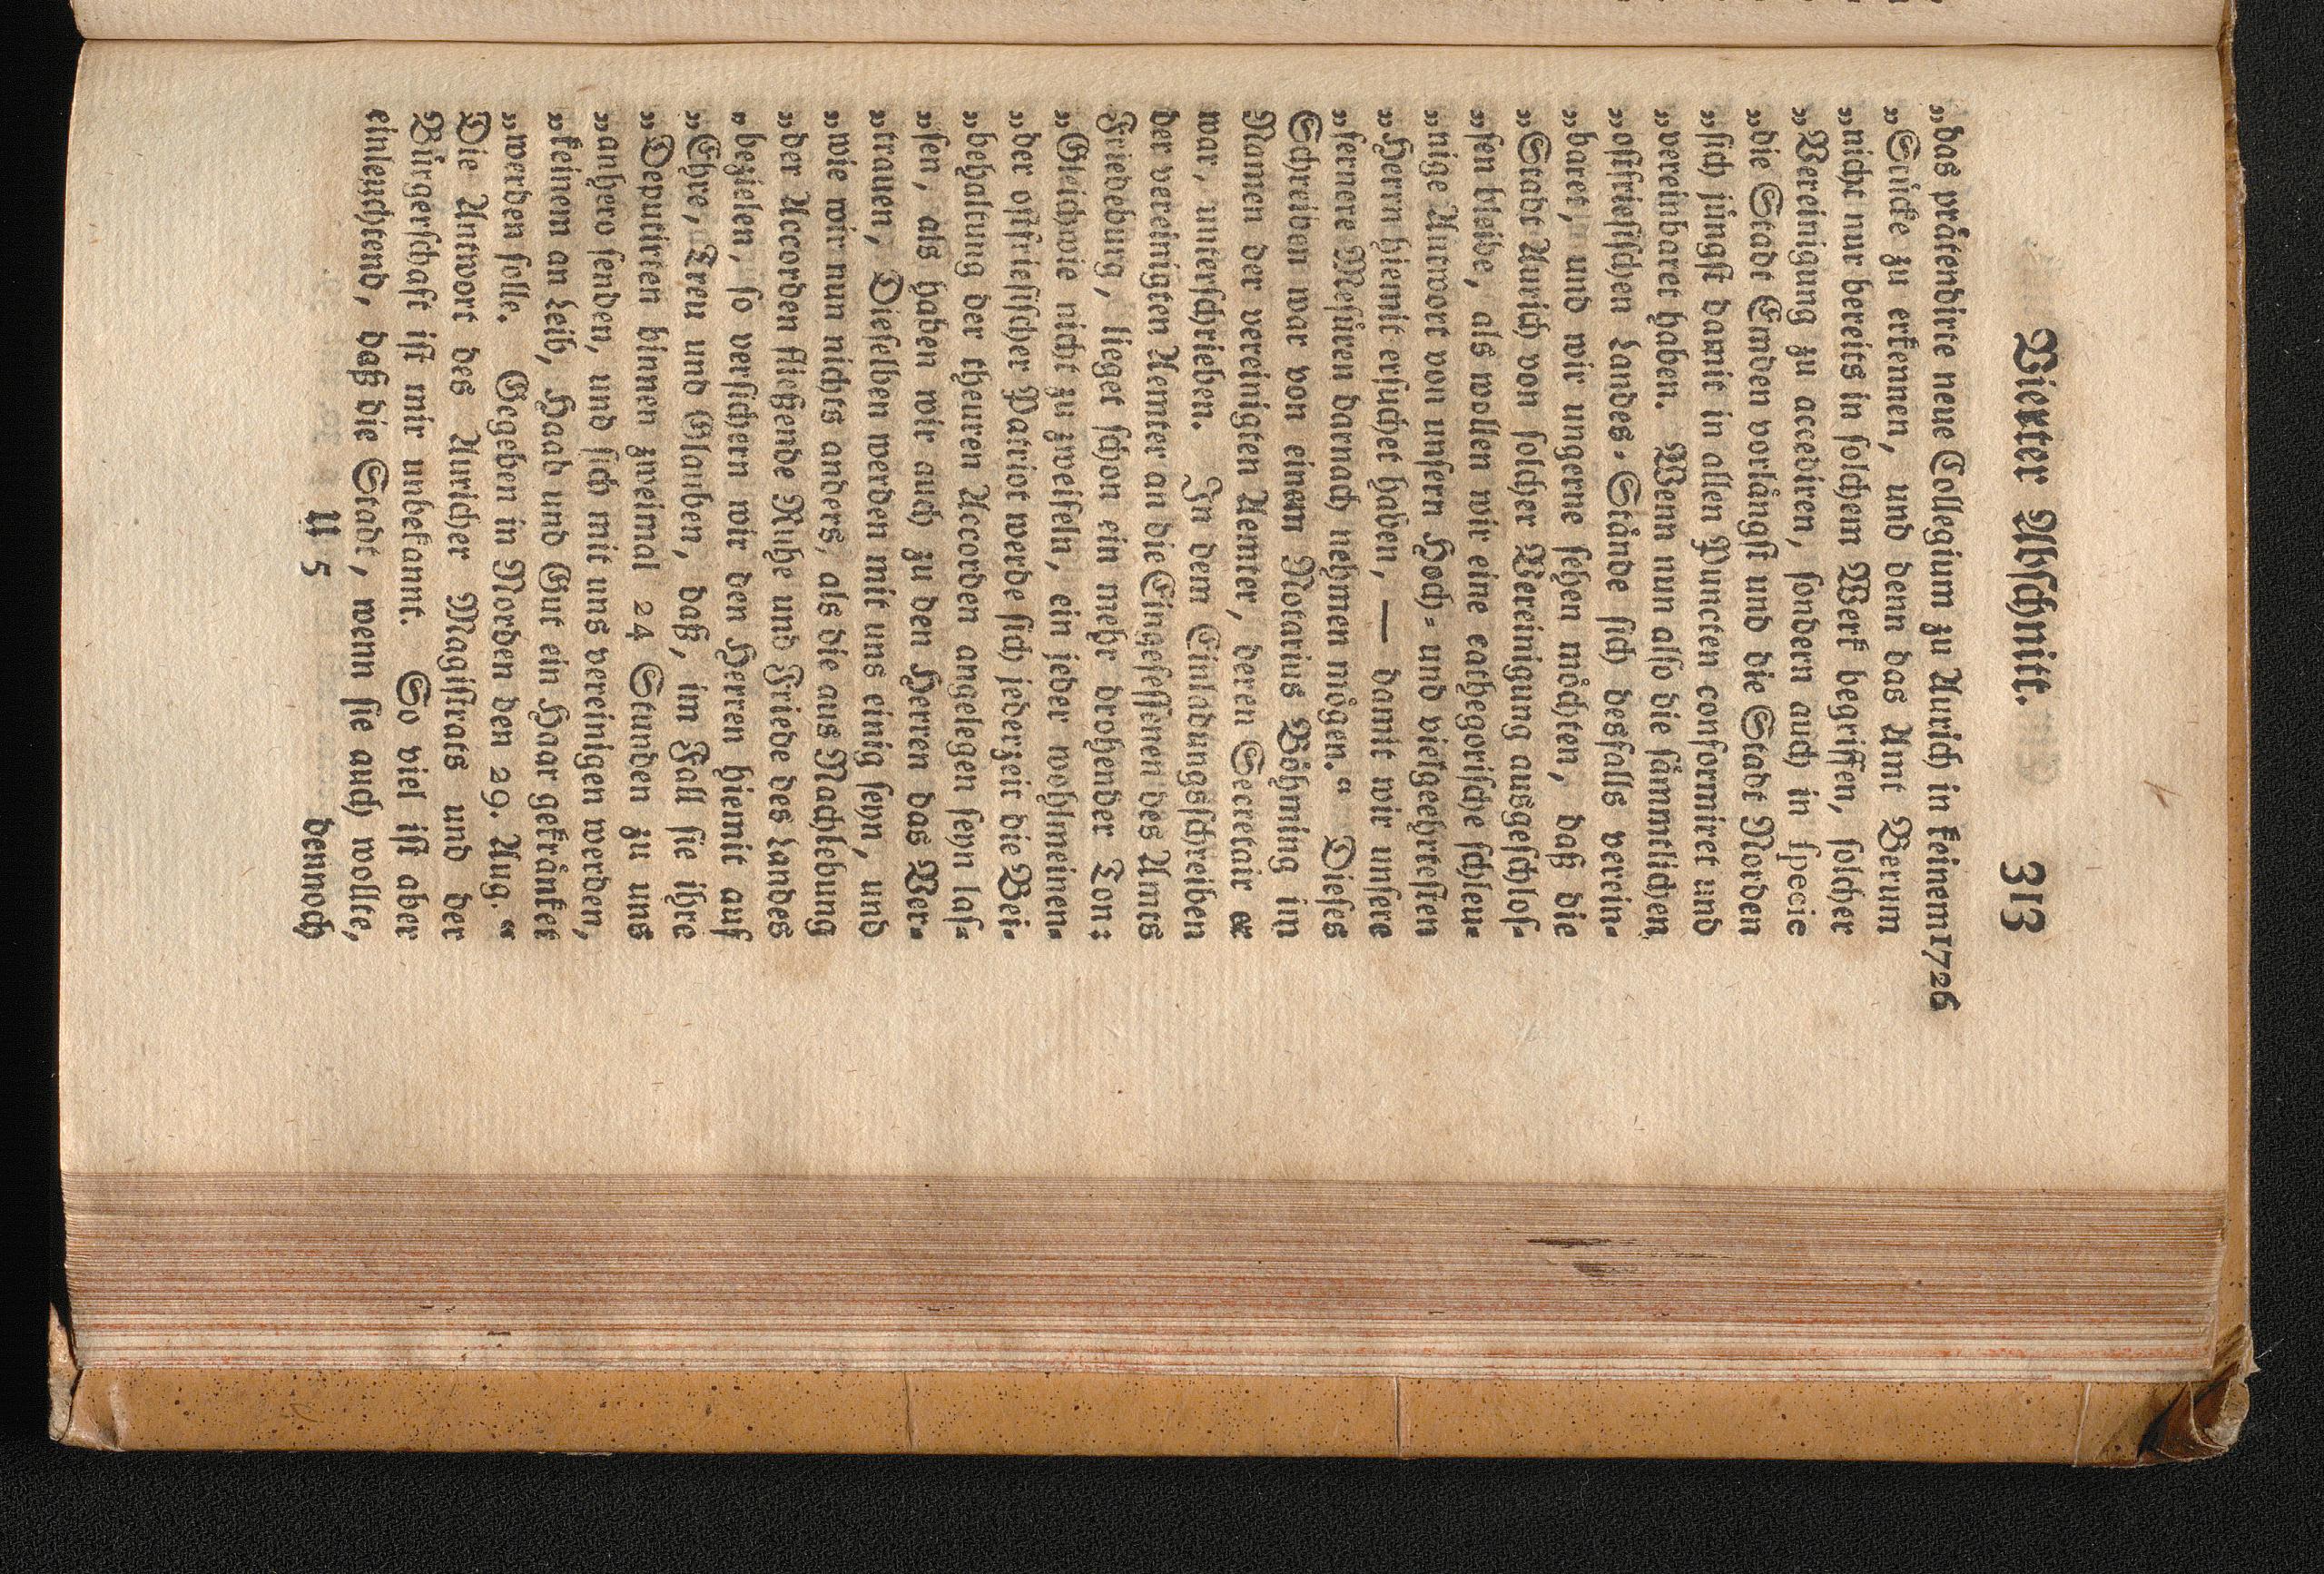 Vierter Abschnitt. 313
„das prätendirte neue Collegium zu Aurich in keinem 1726
„Stücke zu erkennen, und denn das Amt Berum
„nicht nur bereits in solchem Werk begriffen, solcher
„Vereinigung zu accediren, sondern auch in specie
„die Stadt Emden vorlängst und die Stadt Norden
„sich jüngst damit in allen Puncten conformiret und
„vereinbaret haben. Wenn nun also die sämmtlichen
„ostfriesischen Landes-Stände sich desfalls verein-
„baret, und wir ungerne sehen möchten, daß die
„Stadt Aurich von solcher Vereinigung ausgeschlos-
„sen bleibe, als wollen wir eine cathegorische schleu-
„nige Antwort von unsern Hoch- und vielgeehrtesten
„Herrn hiemit ersuchet haben, — damit wir unsere
„fernere Mesüren darnach nehmen mögen.“ Dieses
Schreiben war von einem Notarius Böhming im
Namen der vereinigten Aemter, deren Secretair er
war, unterschrieben. In dem Einladungsschreiben
der vereinigten Aemter an die Eingesessenen des Amts
Friedeburg, lieget schon ein mehr drohender Ton:
„Gleichwie nicht zu zweifeln, ein jeder wohlmeinen-
„der ostfriesischer Patriot werde sich jederzeit die Bei-
„behaltung der theuren Accorden angelegen seyn las-
„sen, als haben wir auch zu den Herren das Ver-
„trauen, Dieselben werden mit uns einig seyn, und
„wie wir nun nichts anders, als die aus Nachlebung
„der Accorden fliessende Ruhe und Friede des Landes
„bezielen, so versichern wir den Herren hiemit auf
„Ehre, Treu und Glauben, daß, im Fall sie ihre
„Deputirten binnen zweimal 24 Stunden zu uns
„anhero senden, und sich mit uns vereinigen werden,
„keinem an Leib, Haab und Gut ein Haar gekränket
„werden solle. Gegeben in Norden den 29. Aug.“
Die Antwort des Auricher Magistrats und der
Bürgerschaft ist mir unbekannt. So viel ist aber
einleuchtend, daß die Stadt, wenn sie auch wollte,
U 5 dennoch